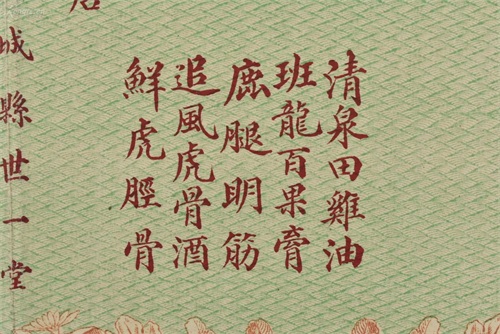 清泉田雞油
班龍百果膏
鹿腿明筋
追風虎骨酒
鮮虎脛骨
城縣世一堂